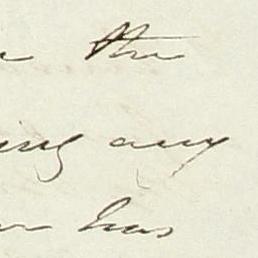 the
ing any
has